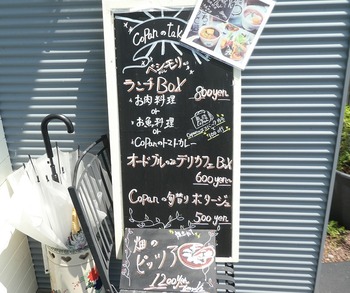 CoPanのtak
ベジモリ
ランチBOX 800yen
・お肉料理
or
・お魚料理
or
・CoPanのトマトカレー
オードブルorデリカフェBox
600yen
CoPanの旬菜りポタージュ
500yen
畑の
ピッツァ
1200yen